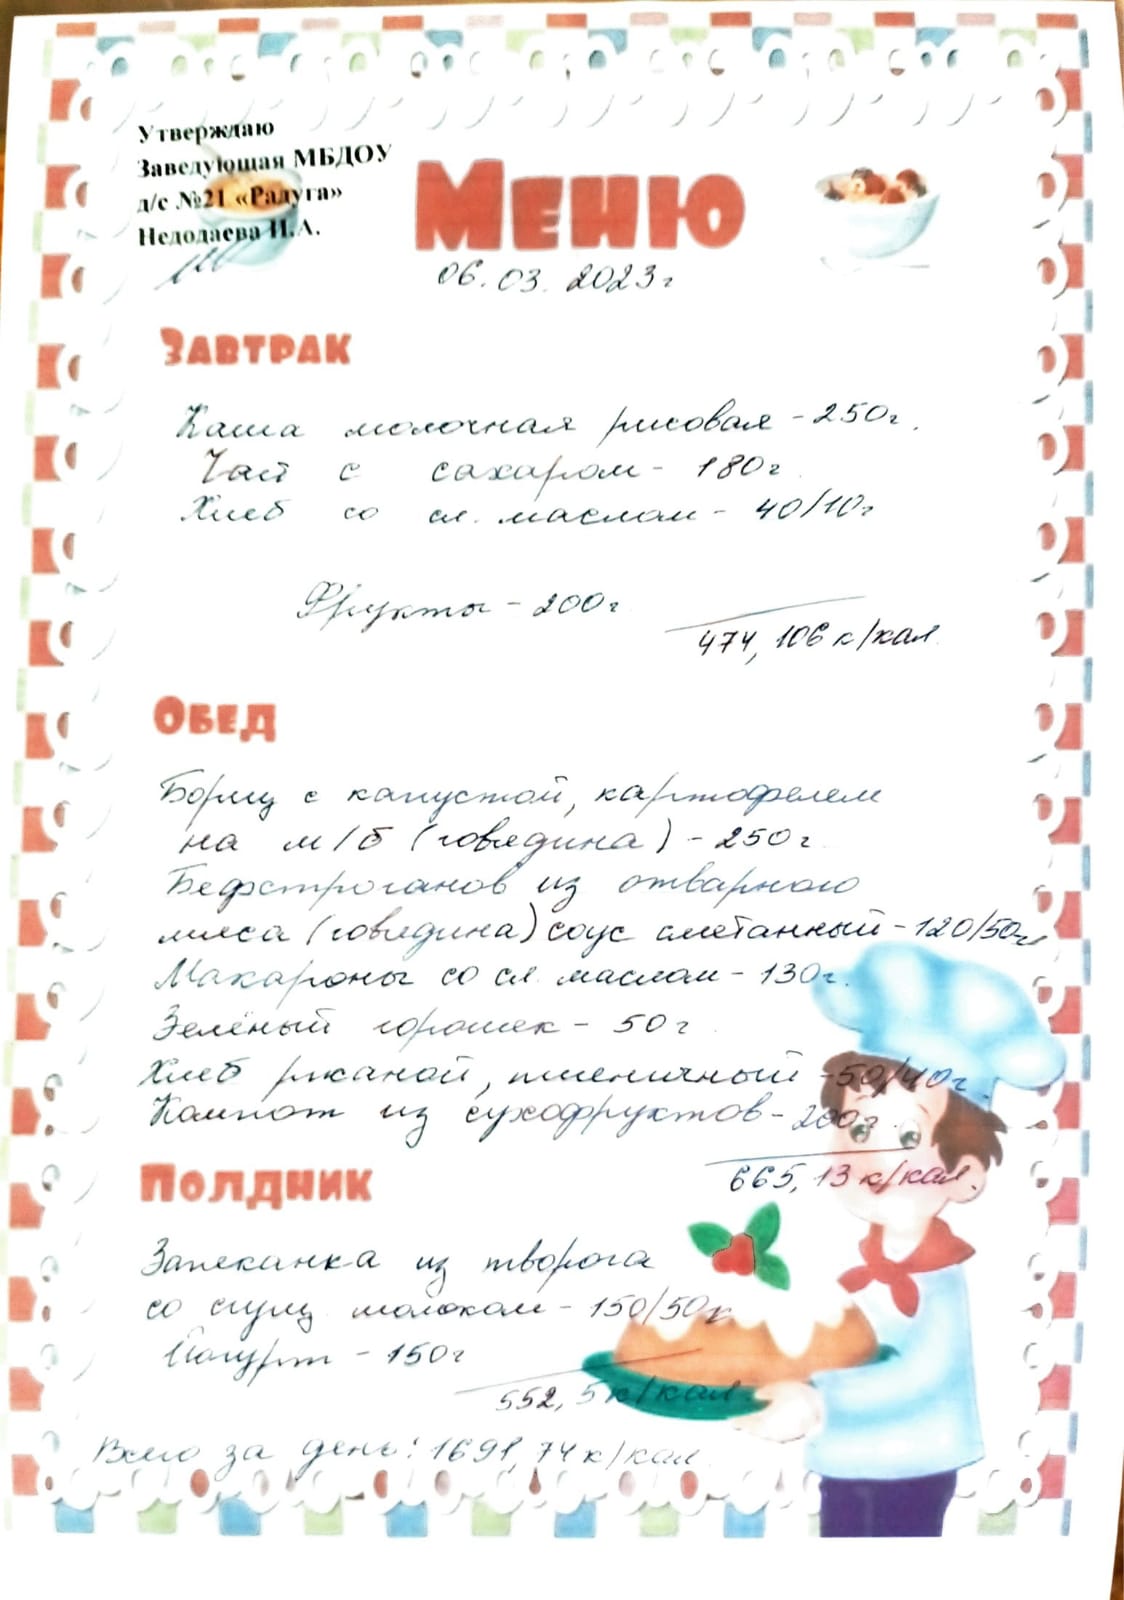 Утверждаю
Заведующая МБДОУ
д/с №21 «Радуга»
Недодаева И.А.
Меню
06.03.2023г
Завтрак
Каша молочная рисовая - 250г.
Чай с сахаром - 180г.
Хлеб со сл. маслом - 40/10г
Фрукты - 200г.
474,106 к/кал.
Обед
Борщ с капустой, картофелем
на м/б (говядина) - 250г.
Бефстроганов из отварного
мяса (говядина) соус сметанный - 120/50г.
Макароны со сл. маслом - 130г.
Зелёный горошек - 50г.
Хлеб ржаной, пшеничный - 50/40г.
Компот из сухофруктов - 200г.
665,13 к/кал.
Полдник
Запеканка из творога
со сгущ. молоком - 150/50г
Йогурт - 150г
552,5 к/кал.
Всего за день: 1691,74 к/кал.